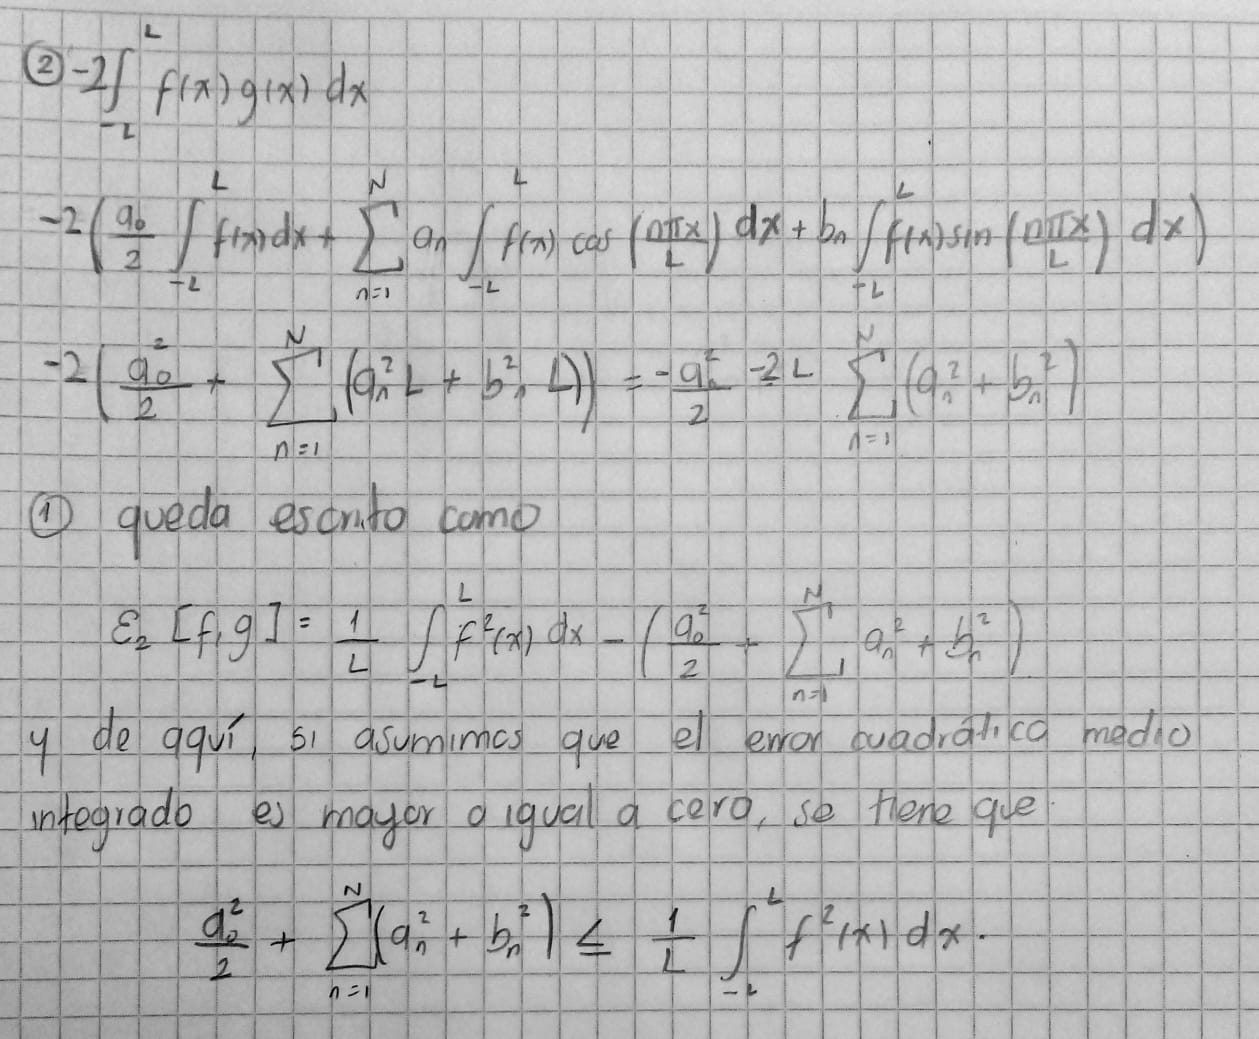 ② -2∫_{-L}^{L} f(x) g(x) dx
-2(a₀/2 ∫_{-L}^{L} f(x) dx + ∑_{n=1}^{N} aₙ ∫_{-L}^{L} f(x) cos(nπx/L) dx + bₙ ∫_{-L}^{L} f(x) sin(nπx/L) dx)
-2(a₀²/2 + ∑_{n=1}^{N} (aₙ² L + bₙ² L)) = -a₀²/2 - 2L ∑_{n=1}^{N} (aₙ² + bₙ²)
① queda escrito como
ε₂ [f,g] = 1/L ∫_{-L}^{L} f²(x) dx - (a₀²/2 + ∑_{n=1}^{N} aₙ² + bₙ²)
y de aquí, si asumimos que el error cuadrático medio
integrado es mayor o igual a cero, se tiene que
a₀²/2 + ∑_{n=1}^{N} (aₙ² + bₙ²) ≤ 1/L ∫_{-L}^{L} f²(x) dx.